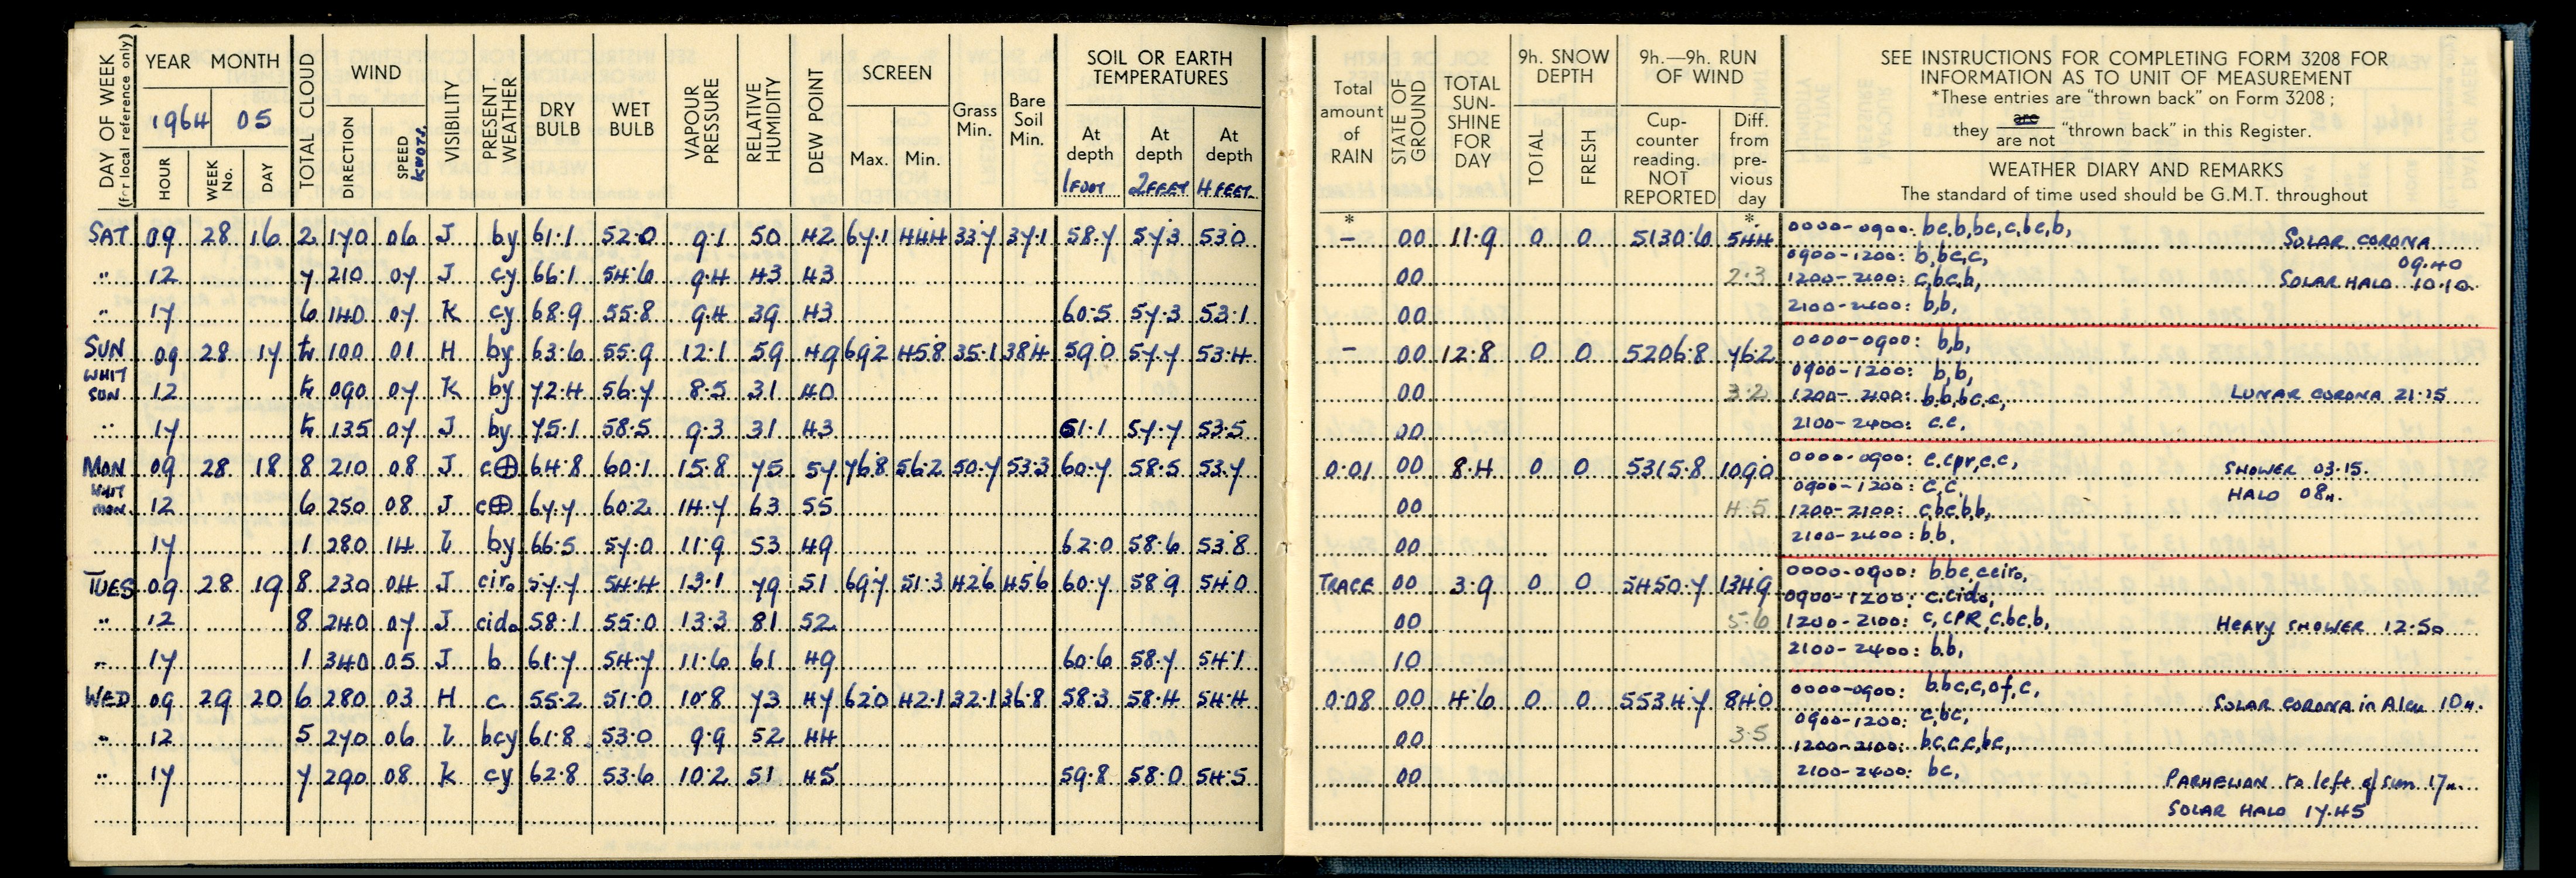 DAY OF WEEK (for local reference only)
YEAR MONTH
1964 05
HOUR WEEK No. DAY
TOTAL CLOUD
WIND
DIRECTION SPEED KNOTS
VISIBILITY
PRESENT WEATHER
DRY BULB
WET BULB
VAPOUR PRESSURE
RELATIVE HUMIDITY
DEW POINT
SCREEN
Max. Min.
Grass Min.
Bare Soil Min.
SOIL OR EARTH TEMPERATURES
At depth 1 FOOT At depth 2 FEET At depth 4 FEET
SAT 09 28 16 2 170 06 J by 61.1 52.0 9.1 50 42 67.1 44.4 33.7 37.1 58.7 57.3 53.0
" 12 7 210 07 J cy 66.1 54.6 9.4 43 43
" 17 6 140 07 K cy 68.9 55.8 9.4 39 43 60.5 57.3 53.1
SUN 09 28 17 tr 100 01 H by 63.6 55.9 12.1 59 49 69.2 45.8 35.1 38.4 59.0 57.7 53.4
WHIT SUN 12 tr 090 07 K by 72.4 56.7 8.5 31 40
" 17 tr 135 07 J by 75.1 58.5 9.3 31 43 61.1 57.7 53.5
MON 09 28 18 8 210 08 J c⊕ 64.8 60.1 15.8 75 57 76.8 56.2 50.7 53.3 60.7 58.5 53.7
WHIT MON. 12 6 250 08 J c⊕ 67.7 60.2 14.7 63 55
17 1 280 14 I by 66.5 57.0 11.9 53 49 62.0 58.6 53.8
TUES 09 28 19 8 230 04 J ciro 57.7 54.4 13.1 79 51 69.7 51.3 42.6 45.6 60.7 58.9 54.0
" 12 8 240 07 J cido 58.1 55.0 13.3 81 52
" 17 1 340 05 J b 61.7 54.7 11.6 61 49 60.6 58.7 54.1
WED 09 29 20 6 280 03 H c 55.2 51.0 10.8 73 47 62.0 42.1 32.1 36.8 58.3 58.4 54.4
" 12 5 270 06 I bcy 61.8 53.0 9.9 52 44
" 17 7 290 08 K cy 62.8 53.6 10.2 51 45 59.8 58.0 54.5
Total amount of RAIN
STATE OF GROUND
TOTAL SUN-SHINE FOR DAY
9h. SNOW DEPTH
TOTAL FRESH
9h.—9h. RUN OF WIND
Cup-counter reading. NOT REPORTED
Diff. from pre-vious day
SEE INSTRUCTIONS FOR COMPLETING FORM 3208 FOR
INFORMATION AS TO UNIT OF MEASUREMENT
*These entries are "thrown back" on Form 3208 ;
they are / are not "thrown back" in this Register.
WEATHER DIARY AND REMARKS
The standard of time used should be G.M.T. throughout
* *
– 00 11.9 0 0 5130.6 54.4 0000-0900: bc,b,bc,c,bc,b, SOLAR CORONA
0900-1200: b,bc,c, 09.40
00 2.3 1200-2100: c,bc,b, SOLAR HALO 10.10
00 2100-2400: b,b,
– 00 12.8 0 0 5206.8 76.2 0000-0900: b,b,
0900-1200: b,b,
00 3.2 1200-2100: b,b,bc,c, LUNAR CORONA 21.15
00 2100-2400: c,c,
0.01 00 8.4 0 0 5315.8 109.0 0000-0900: c,cpr,c,c, SHOWER 03.15.
0900-1200: c,c, HALO 08h.
00 4.5 1200-2100: c,bc,b,b,
00 2100-2400: b,b,
TRACE 00 3.9 0 0 5450.7 134.9 0000-0900: b,bc,c,ciro,
0900-1200: c,cido,
00 5.6 1200-2100: c,cPR,c,bc,b, HEAVY SHOWER 12.50
10 2100-2400: b,b,
0.08 00 4.6 0 0 5534.7 84.0 0000-0900: b,bc,c,of,c, SOLAR CORONA in Alcu 10h.
0900-1200: c,bc,
00 3.5 1200-2100: bc,c,c,bc,
00 2100-2400: bc, PARHELION to left of Sun 17h.
SOLAR HALO 17.45